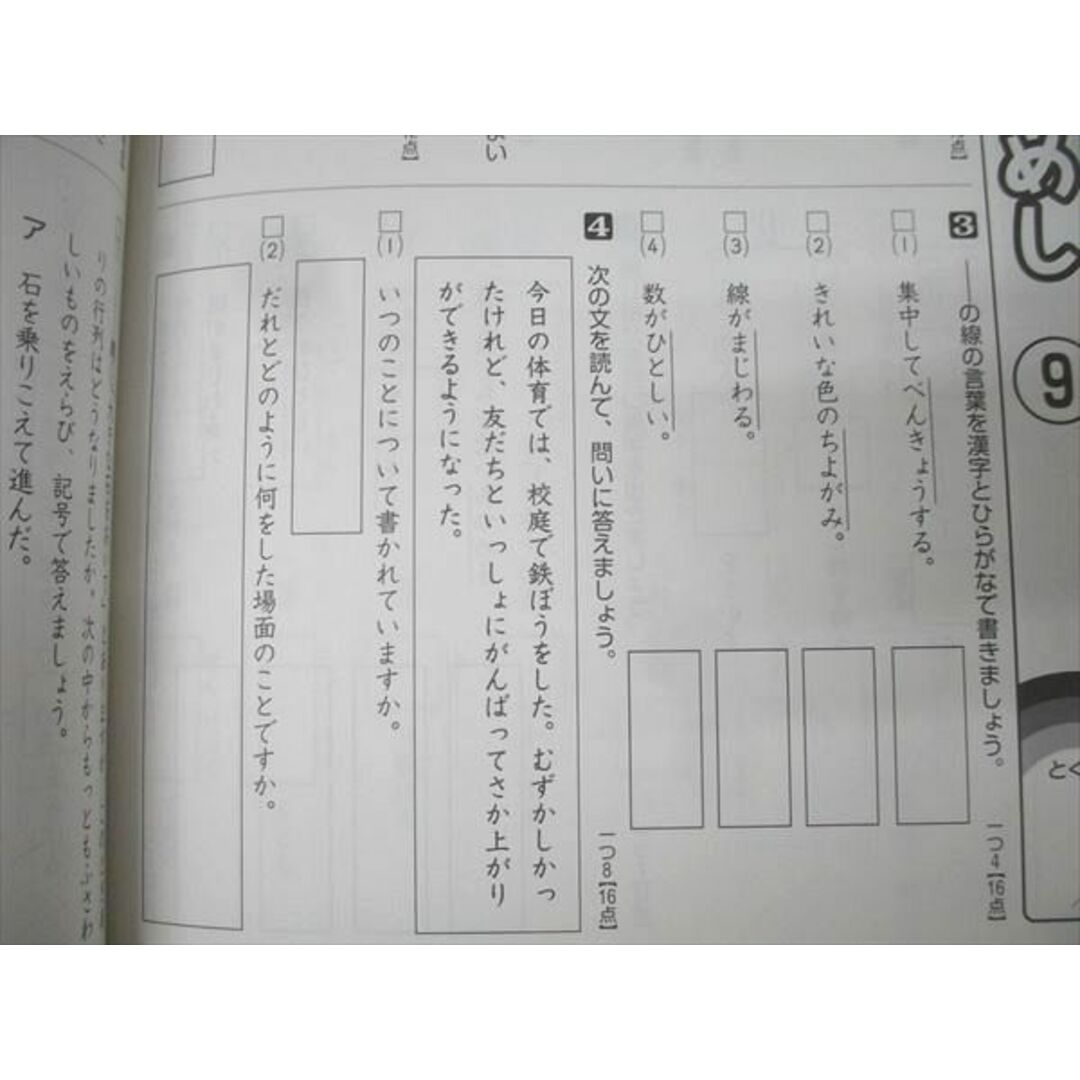 めし
9
とく
点】
3 ――の線の言葉を漢字とひらがなで書きましょう。
一つ4【16点】
(1) 集中してべんきょうする。
(2) きれいな色のちよがみ。
(3) 線がまじわる。
(4) 数がひとしい。
点】
4 次の文を読んで、問いに答えましょう。
一つ8【16点】
今日の体育では、校庭で鉄ぼうをした。むずかしかっ
たけれど、友だちといっしょにがんばってさか上がり
ができるようになった。
(1) いつのことについて書かれていますか。
(2) だれとどのように何をした場面のことですか。
りの行列はどうなりましたか。次の中からもっとも
しいものをえらび、記号で答えましょう。
ア 石を乗りこえて進んだ。